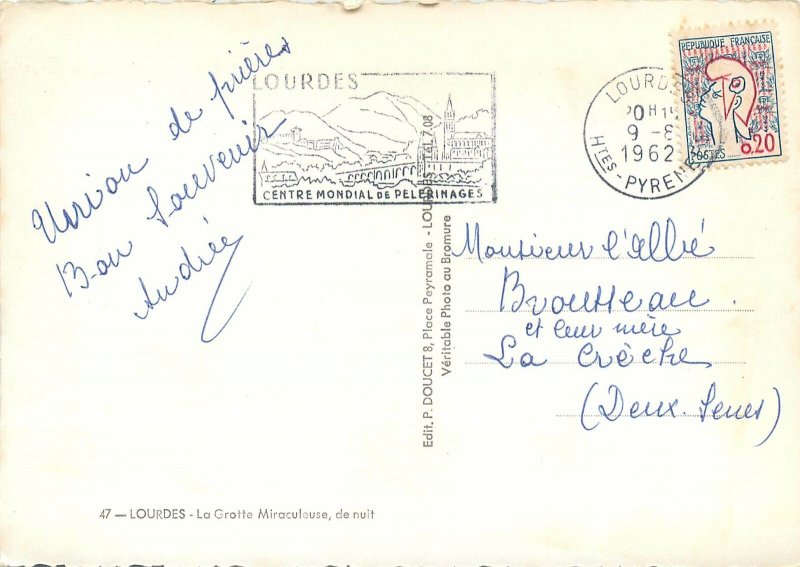 Union de prières
Bon Souvenir
Andrée
LOURDES
CENTRE MONDIAL DE PELERINAGES
LOURDES
9 -8
1962
HTES-PYRENEES
REPUBLIQUE FRANÇAISE
0,20
POSTES
Edit. P. DOUCET 8, Place Peyramale - LOURDES - Tél. 7.08
Véritable Photo au Bromure
Monsieur l'Abbé
Brousseau
et leur mère
La Crèche
(Deux-Sevres)
47 — LOURDES - La Grotte Miraculeuse, de nuit